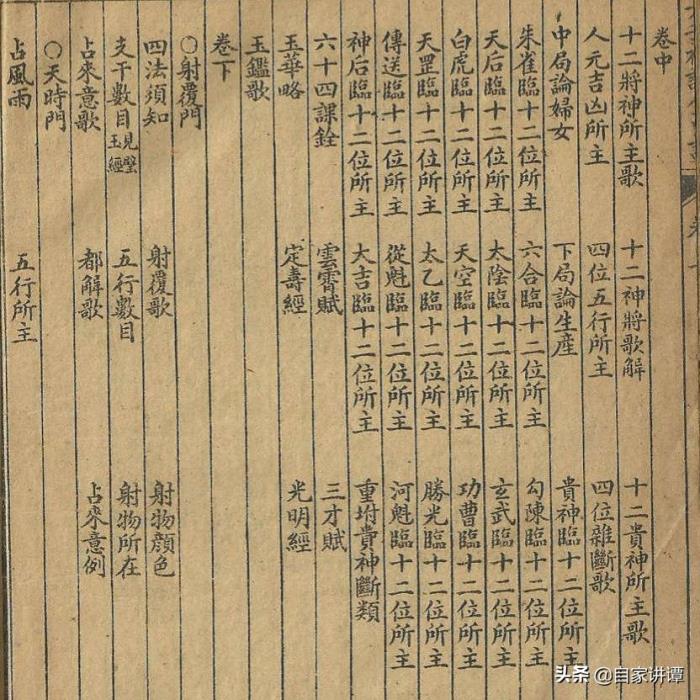 卷中
十二將神所主歌 十二神將歌解 十二貴神所主歌
人元吉凶所主 四位五行所主 四位雜斷歌
中局論婦女 下局論生產 貴神臨十二位所主
朱雀臨十二位所主 六合臨十二位所主 勾陳臨十二位所主
天后臨十二位所主 太陰臨十二位所主 玄武臨十二位所主
白虎臨十二位所主 天空臨十二位所主 功曹臨十二位所主
天罡臨十二位所主 太乙臨十二位所主 勝光臨十二位所主
傳送臨十二位所主 從魁臨十二位所主 河魁臨十二位所主
神后臨十二位所主 大吉臨十二位所主 重坿貴神斷類
六十四課銓 雲霄賦 三才賦
玉華略 定壽經 光明經
玉鑑歌
卷下
○射覆門
四法須知 射覆歌 射物顏色
支干數目見璧玉經 五行數目 射物所在
占來意歌 都解歌 占來意例
○天時門
占風雨 五行所主
头条 @自家讲谭